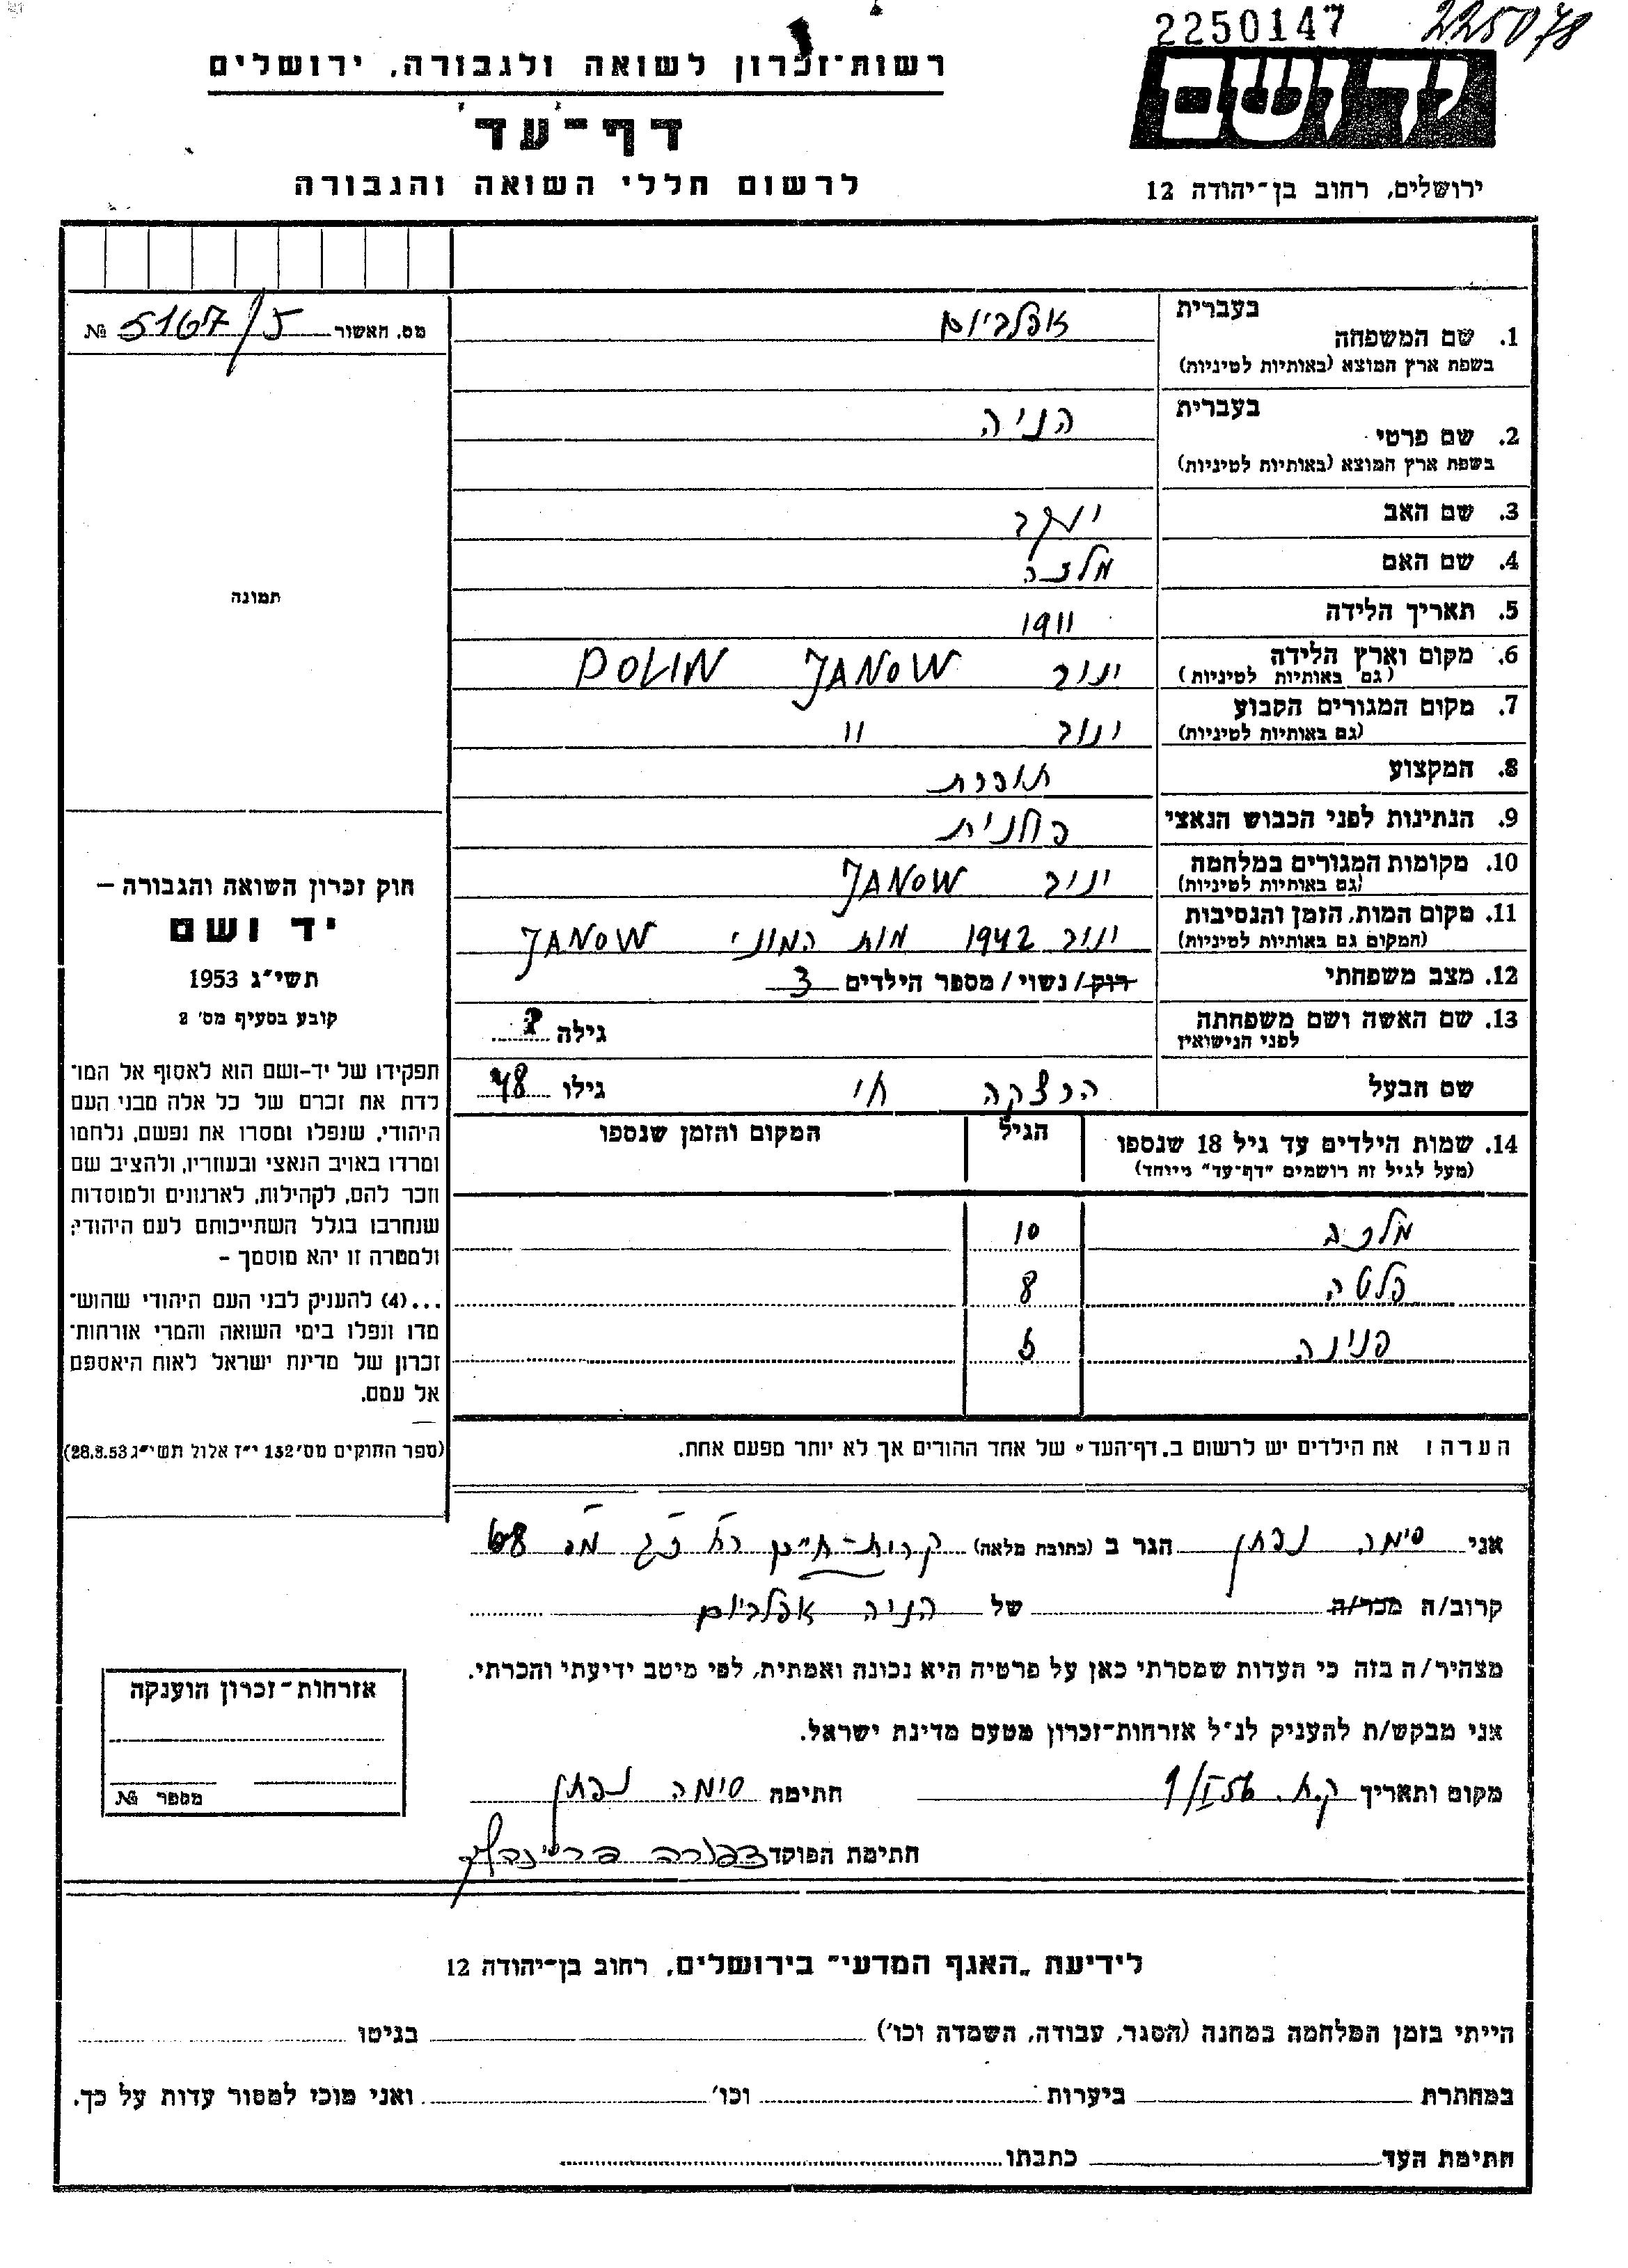 2250147
225078
רשות־זכרון לשואה ולגבורה, ירושלים
דף־עד
לרשום חללי השואה והגבורה
יד ושם
ירושלים, רחוב בן־יהודה 12
מס. האשור 5167/5 №
תמונה
1. שם המשפחה בעברית אפלבוים
בשפת ארץ המוצא (באותיות לטיניות)
2. שם פרטי בעברית הניה
בשפת ארץ המוצא (באותיות לטיניות)
3. שם האב יעקב
4. שם האם מלכה
5. תאריך הלידה 1911
6. מקום וארץ הלידה ינוב JANOW
(גם באותיות לטיניות)
7. מקום המגורים הקבוע ינוב 11
(גם באותיות לטיניות)
8. המקצוע תופרת
9. הנתינות לפני הכבוש הנאצי
10. מקומות המגורים במלחמה ינוב JANOW
(גם באותיות לטיניות)
11. מקום המות, הזמן והנסיבות ינוב 1942 מות המוני JANOW
(המקום גם באותיות לטיניות)
12. מצב משפחתי רוק/נשוי/מספר הילדים 3
13. שם האשה ושם משפחתה גילה ?
לפני הנישואין
שם הבעל גילו 48
14. שמות הילדים עד גיל 18 שנספו הגיל המקום והזמן שנספו
(מעל לגיל זה רושמים "דף־עד" מיוחד)
10
8
פנינה 5
הערה: את הילדים יש לרשום ב„דף־העד" של אחד ההורים אך לא יותר מפעם אחת.
חוק זכרון השואה והגבורה –
יד ושם
תשי"ג 1953
קובע בסעיף מס' 2
תפקידו של יד-ושם הוא לאסוף אל המו־
לדת את זכרם של כל אלה מבני העם
היהודי, שנפלו ומסרו את נפשם, נלחמו
ומרדו באויב הנאצי ובעוזריו, ולהציב שם
וזכר להם, לקהילות, לארגונים ולמוסדות
שנחרבו בגלל השתייכותם לעם היהודי;
ולמטרה זו יהא מוסמך –
...(4) להעניק לבני העם היהודי שהוש־
מדו ונפלו בימי השואה והמרי אזרחות־
זכרון של מדינת ישראל לאות היאספם
אל עמם.
(ספר החוקים מס' 132 י"ז אלול תשי"ג 28.8.53)
אני סימה הגר ב (כתובת מלאה) קרית-חיים
קרוב/ה מכר/ה של הניה אפלבוים
מצהיר/ה בזה כי העדות שמסרתי כאן על פרטיה היא נכונה ואמתית, לפי מיטב ידיעתי והכרתי.
אני מבקש/ת להעניק לנ"ל אזרחות־זכרון מטעם מדינת ישראל.
מקום ותאריך ק.ח. 9/I 56 חתימה סימה
חתימת הפוקד
אזרחות־זכרון הוענקה
מספר №
לידיעת „האגף המדעי" בירושלים, רחוב בן־יהודה 12
הייתי בזמן המלחמה במחנה (הסגר, עבודה, השמדה וכו') בגיטו
במחתרת ביערות וכו' ואני מוכן למסור עדות על כך.
חתימת העד כתבתו